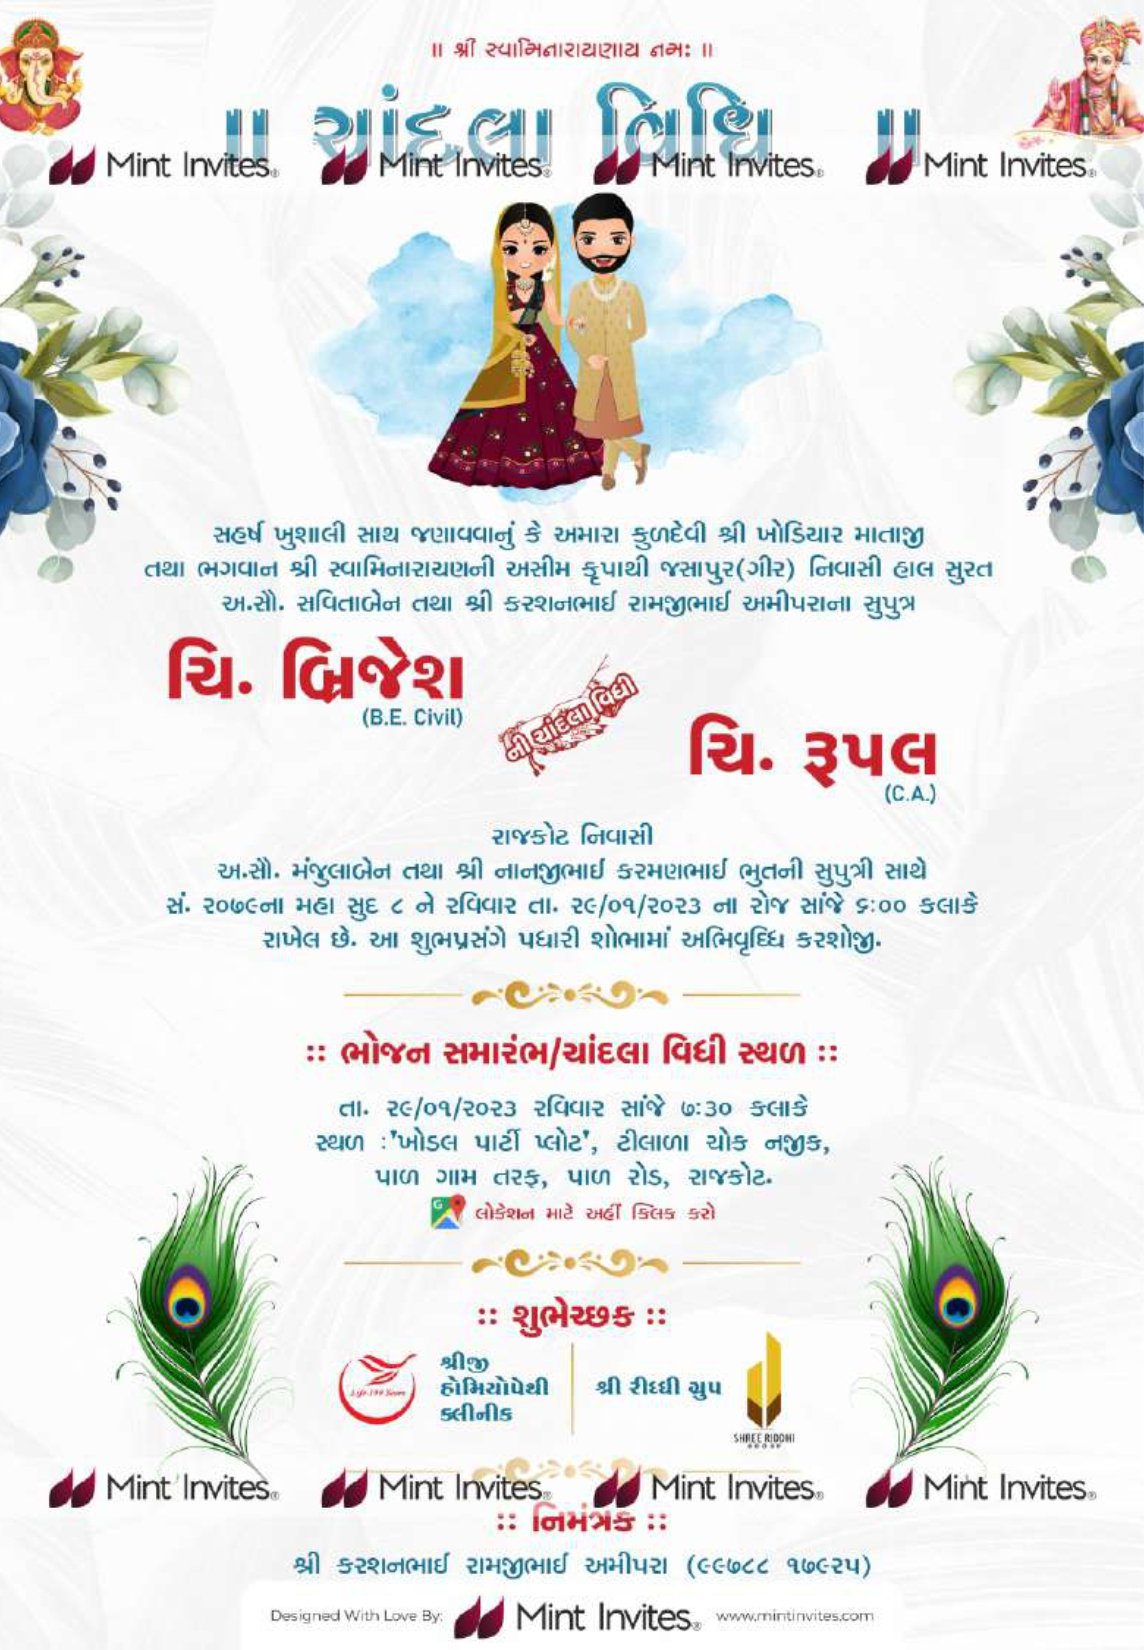 ॥ શ્રી સ્વામિનારાયણાય નમઃ ॥
॥ ચાંદલા વિધિ ॥
Mint Invites® Mint Invites® Mint Invites® Mint Invites®
સહર્ષ ખુશાલી સાથ જણાવવાનું કે અમારા કુળદેવી શ્રી ખોડિયાર માતાજી
તથા ભગવાન શ્રી સ્વામિનારાયણની અસીમ કૃપાથી જસાપુર(ગીર) નિવાસી હાલ સુરત
અ.સૌ. સવિતાબેન તથા શ્રી કરશનભાઈ રામજીભાઈ અમીપરાના સુપુત્ર
ચિ. બ્રિજેશ
(B.E. Civil)
ની ચાંદલા વિધી
ચિ. રૂપલ
(C.A.)
રાજકોટ નિવાસી
અ.સૌ. મંજુલાબેન તથા શ્રી નાનજીભાઈ કરમણભાઈ ભુતની સુપુત્રી સાથે
સં. ૨૦૭૯ના મહા સુદ ૮ ને રવિવાર તા. ૨૯/૦૧/૨૦૨૩ ના રોજ સાંજે ૬:૦૦ કલાકે
રાખેલ છે. આ શુભપ્રસંગે પધારી શોભામાં અભિવૃધ્ધિ કરશોજી.
:: ભોજન સમારંભ/ચાંદલા વિધી સ્થળ ::
તા. ૨૯/૦૧/૨૦૨૩ રવિવાર સાંજે ૭:૩૦ કલાકે
સ્થળ :'ખોડલ પાર્ટી પ્લોટ', ટીલાળા ચોક નજીક,
પાળ ગામ તરફ, પાળ રોડ, રાજકોટ.
લોકેશન માટે અહીં ક્લિક કરો
:: શુભેચ્છક ::
શ્રીજી
હોમિયોપેથી
ક્લીનીક
શ્રી રીધ્ધી ગ્રુપ
SHREE RIDDHI
GROUP
Mint Invites® Mint Invites® Mint Invites® Mint Invites®
:: નિમંત્રક ::
શ્રી કરશનભાઈ રામજીભાઈ અમીપરા (૯૯૭૮૮ ૧૭૯૨૫)
Designed With Love By: Mint Invites® www.mintinvites.com